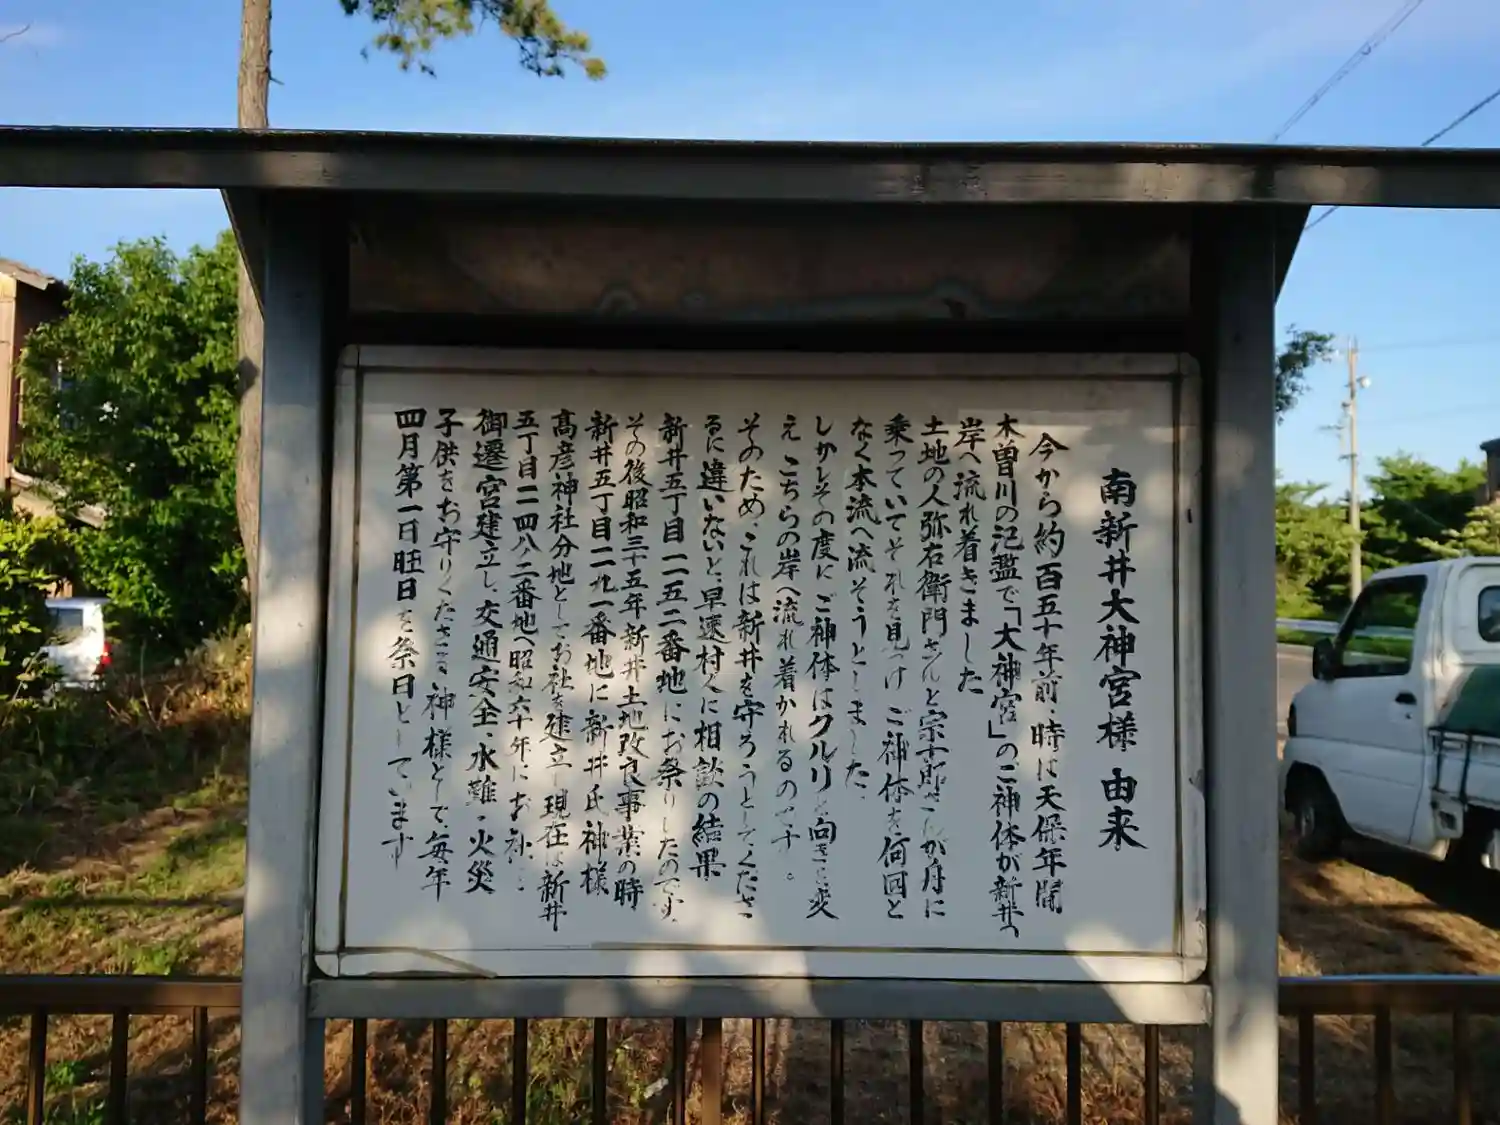 南新井大神宮様 由来
今から約百五十年前、時は天保年間
木曽川の氾濫で「大神宮」のご神体が新井の
岸へ流れ着きました
土地の人弥右衛門さんと宗十郎さんが舟に
乗っていてそれを見つけ ご神体を何回と
なく本流へ流そうとしました、
しかしその度に ご神体はクルリと向きを変
え こちらの岸へ流れ着かれるのです。
そのため、これは新井を守ろうとしてくださ
るに違いないと、早速村人に相談の結果
新井五丁目一一五二番地にお祭りしたのです、
その後昭和三十五年新井土地改良事業の時
新井五丁目二九一番地に新井氏神様
髙彦神社分地としてお社を建立し現在は新井
五丁目二四八ノ二番地へ昭和六十年にお社を
御遷宮建立し、交通安全、水難・火災
子供をお守りくださる神様として、毎年
四月第一日曜日を祭日としています